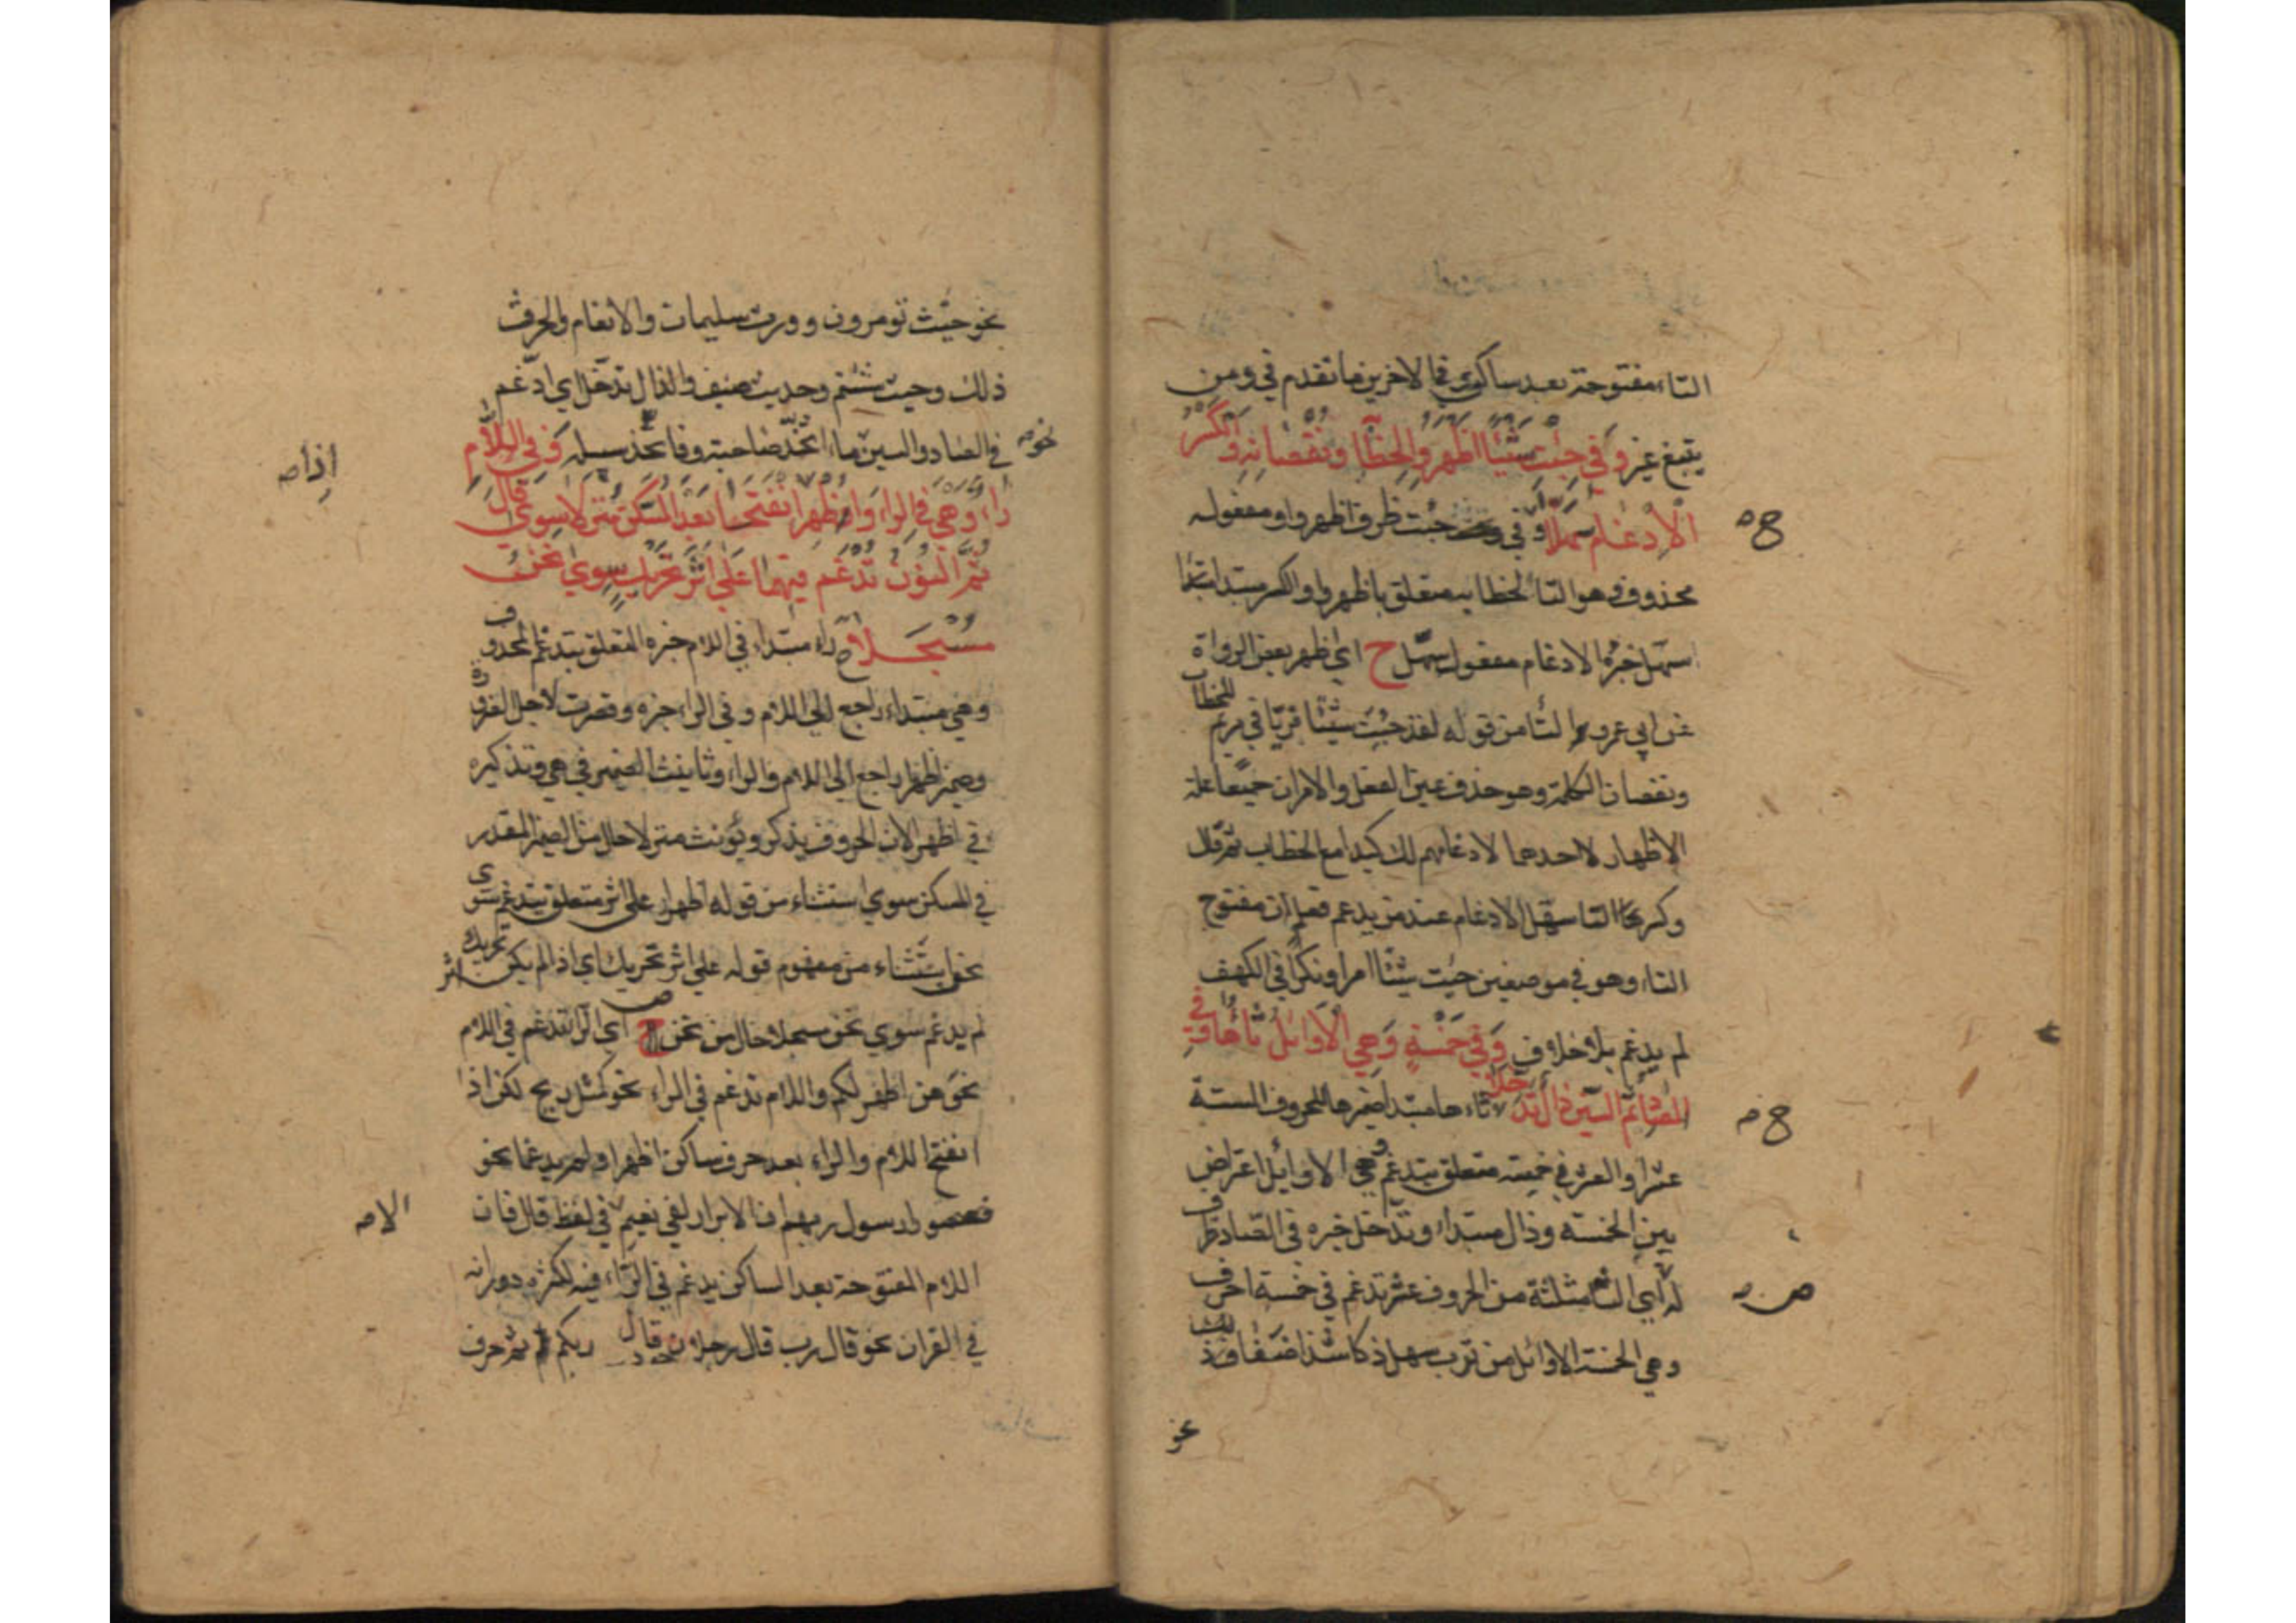 التاء مفتوحة بعد ساكن في الاخرين ما تقدم في ومن
يتبع غير وَفي جِئْتَ شَيْئًا اَظْهَرُوا لِخِطَابِهِ وَنُقْصَانِهِ وَالْكَسْرُ
الْاِدْغَامَ سَهَّلَا في جئت ظرف اظهروا ومفعوله
ح
محذوف وهو التا لخطابه متعلق باظهروا والكسر مبتدا
سهل خبره الادغام مفعول سهل ح اي اظهر بعض الرواة
عن ابي عمرو التا من قوله لقد جئت شيئا فريا في مريم للخطاب
ونقصان الكلمة وهو حذف عين الفعل والامران جميعا علة
الاظهار لا احدهما لادغامهم لك كيدا مع الخطاب ثم قال
وكسر التا سهل الادغام عند من يدغم فعلم ان مفتوح
التاء وهو في موضعين جئت شيئا امرا ونكرا في الكهف
لم يدغم بلا خلاف وَفي خَمْسَةٍ وَهِيَ الْاَوَائِلُ ثَاؤُهَا وَفي
الصَّادِ ثُمَّ السِّينِ ذَالٌ تَدَخَّلَا ثاء ها مبتدا ضميرها للحروف الستة
ح
عشر والعشر في خمسة متعلق بتدغم وهي الاوايل اعتراض
بين الخمسة وذال مبتداء وتدخل خبره في الصاد ظرف
له اي الثاء مثلثة من الحروف عشر تدغم في خمسة احرف
ص
وهي الخمسة الاوائل من ترب سهل ذكا شذا ضفا وذلك
نحو
نحو حيث تومرون وورث سليمان والانعام والحرث
ذلك وحيث شئتم وحديث ضيف والذال تدخل اي ادغم
في الصاد والسين نحو ما اتخذ صاحبة وفاتخذ سبيله وَفي اللَّامِ
اذا
رَاءٌ وَهْيَ في الرَّا وَاُظْهِرَا اِذَا انْفَتَحَا بَعْدَ الْمُسَكَّنِ مُنْزَلَا سِوَى قَالَ
ثُمَّ النُّونُ تُدْغَمُ فِيهِمَا عَلَى اِثْرِ تَحْرِيكٍ سِوَى نَحْنُ
مُسْجَلَا راء مبتداء في اللام خبره المتعلق بتدغم المحذوف
وهي مبتداء راجع الى اللام وفي الراء خبره وقصرت لاجل الضرورة
وضمير اظهرا راجع الى اللام والراء وتانيث الضمير في هي وتذكيره
في اظهرا لان الحروف يذكر ويؤنث منزلا حال من الضمير المقدر
في المسكن سوى استثناء من قوله اظهرا على اثر متعلق بتدغم سوى
نحن استثناء من مفهوم قوله على اثر تحريك اي اذا لم يكن اثر تحريك
لم يدغم سوى نحن مسجلا حال من نحن ح اي الرا تدغم في اللام
نحو هن اطهر لكم واللام تدغم في الراء نحو كمثل ريح لكن اذا
انفتح اللام والراء بعد حرف ساكن اظهرا ولم يدغما نحو
فعصوا رسول ربهم ان الابرار لفي نعيم في لفظ قال فان
الا
اللام المفتوحة بعد الساكن يدغم في الراء فيه لكثرة دورانه
في القران نحو قال رب قال رجلان قال ربكم ثم حرف